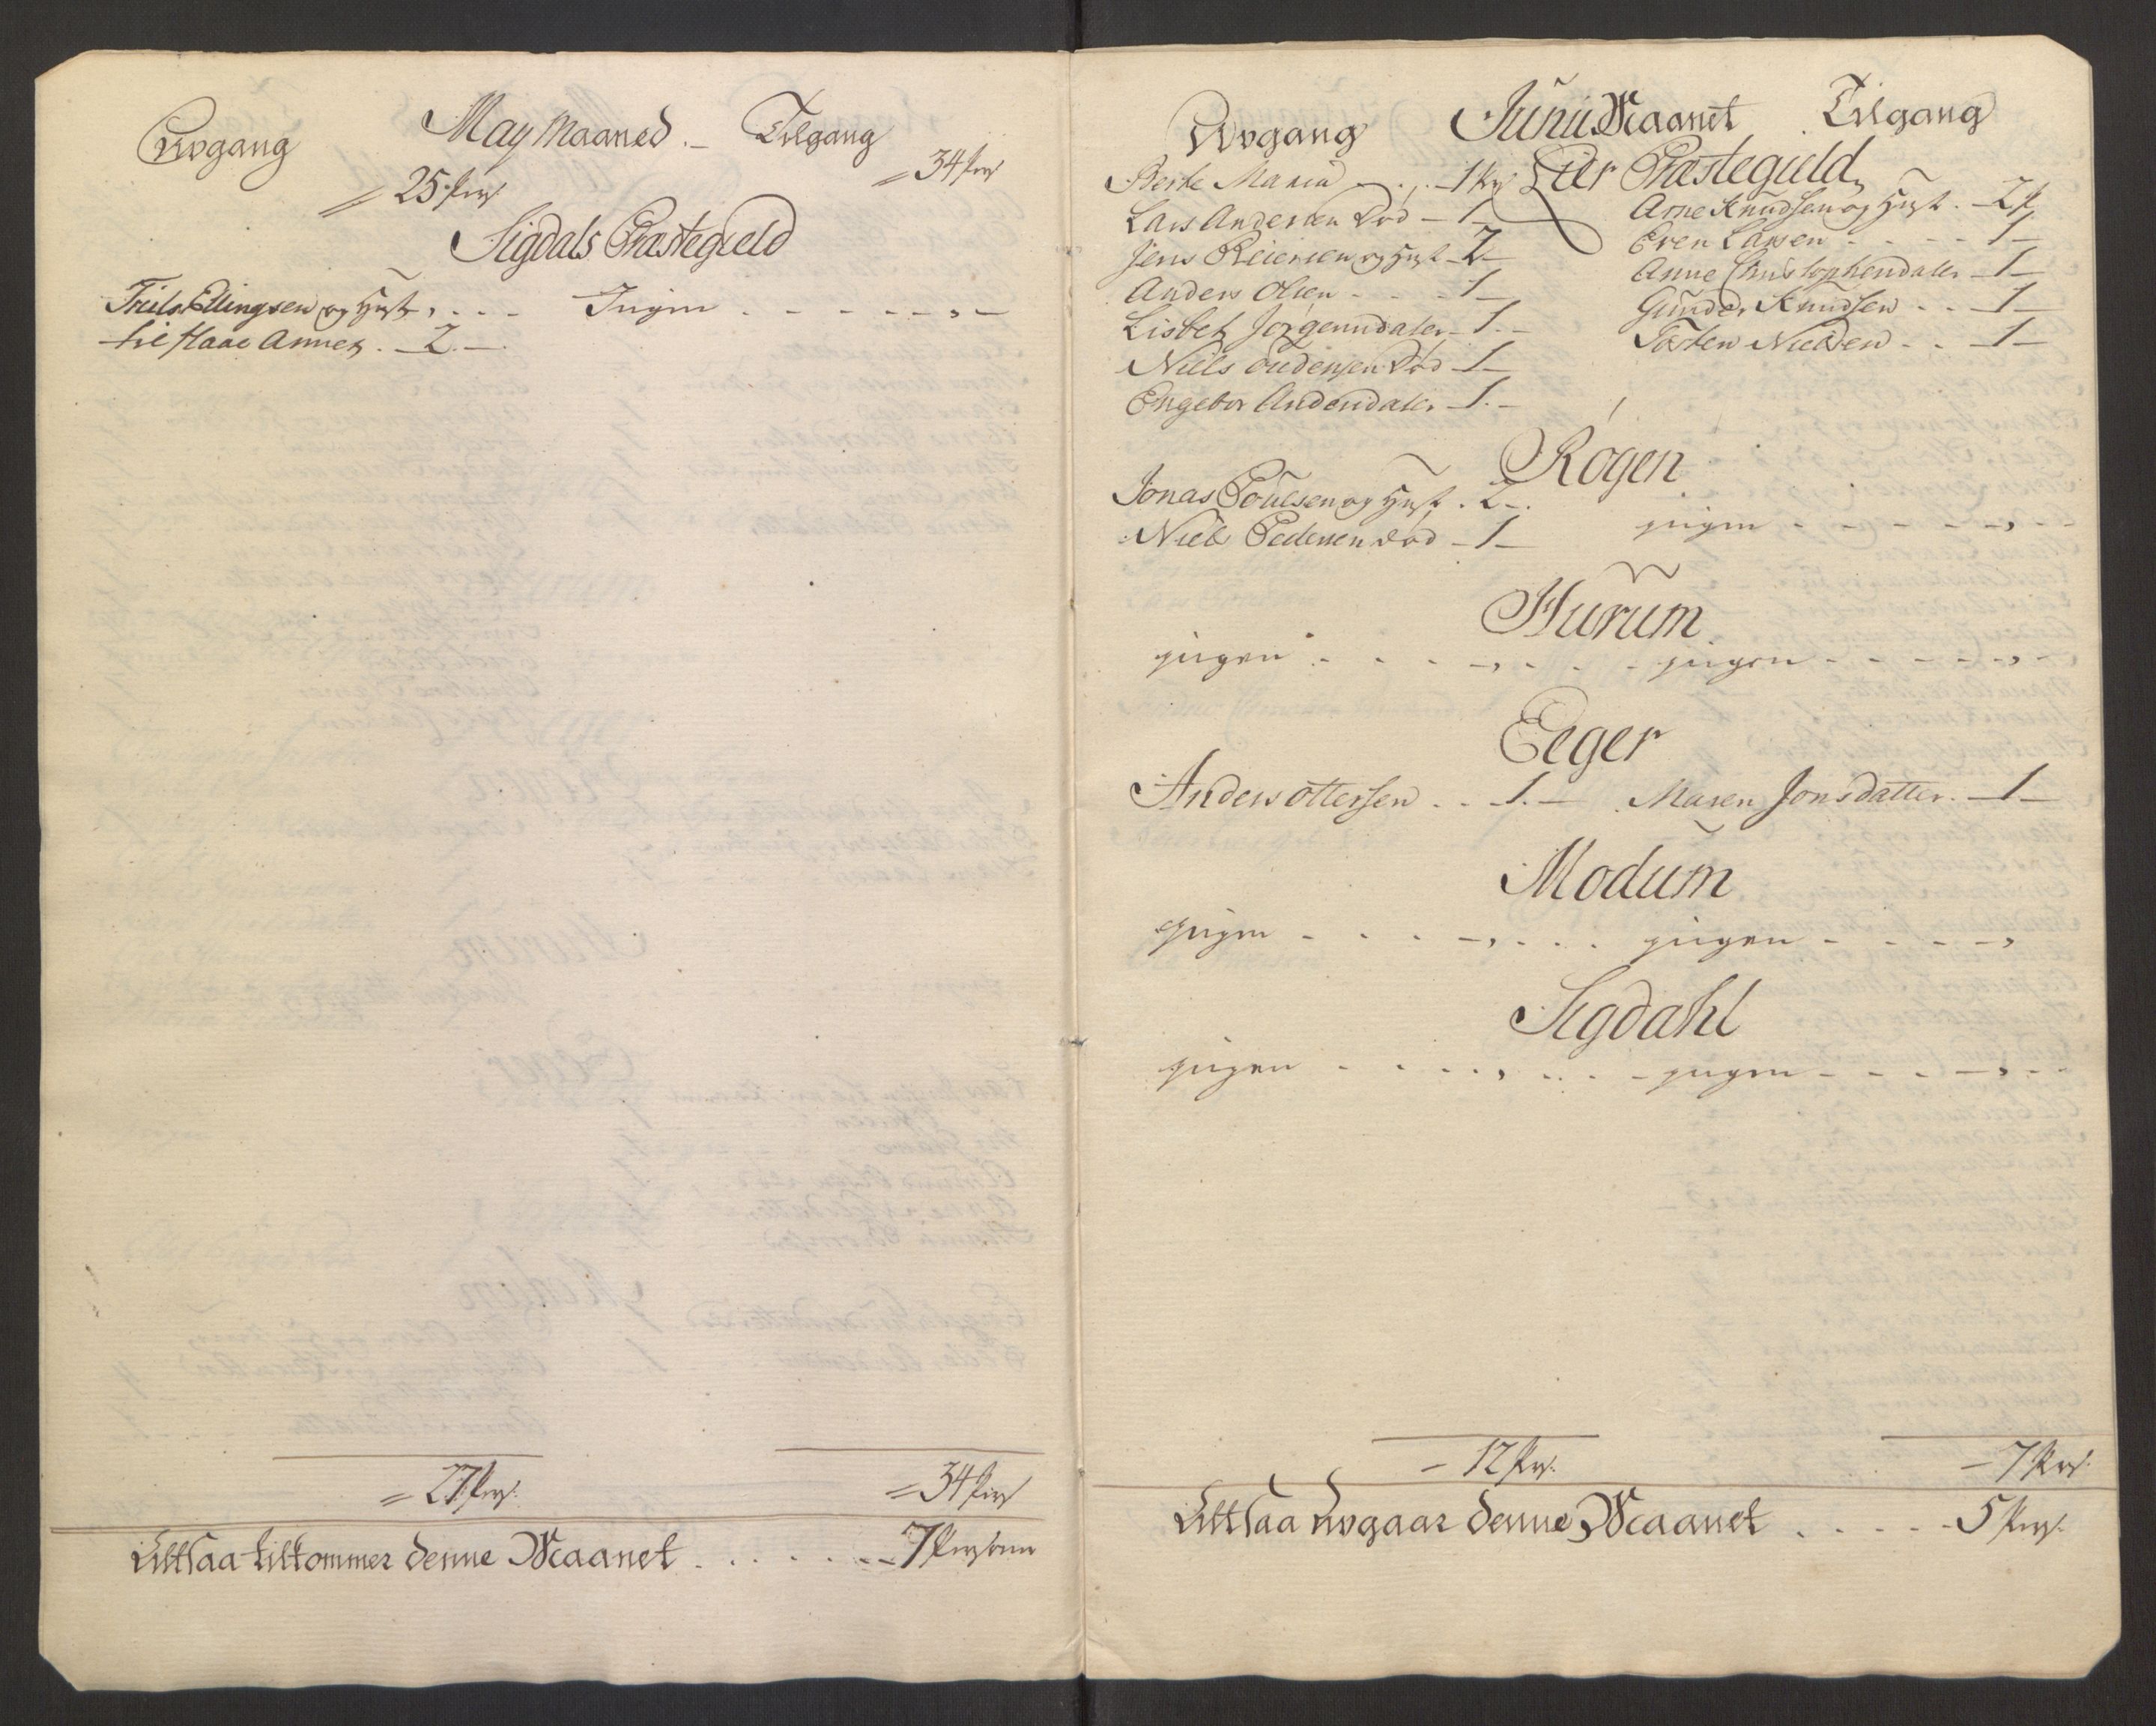 Avgang May Maaned. — Tilgang
= 25 Pers = 34 Pers
Sigdals Præstegield
Truls Ellingsen og Hust, . . . Ingen . . . . . . , —
til Haae Annex . — 2. —
= 27 Pers. = 34 Pers
Altsaa tilkommer denne Maanet . . . . . . — 7 Persohner
Avgang Junii Maanet Tilgang
Lier Præstegield
Berte Maria . . . — 1 Prs Arne Knudsen og Hust. — 2 P
Lars Andersen død — 1 — Even Larsen . . . . — 1 —
Jens Reiersen og Hust — 2 — Anne Christophersdater — 1 —
Anders Olsen . . . — 1 — Gunder Knudsen . . — 1 —
Lisbet Jørgensdater — 1. — Tosten Nielsen . . — 1 —
Niels Oudensen død — 1 —
Engebor Andersdater — 1. —
Røgen
Jonas Poulsen og Hust . 2 —. ingen - - - - - - , - -
Niels Pedersen død — 1 —
Hurum
ingen . . . . — , . . . ingen - - - - - , -
Eeger
Anders Ottersen . . — 1. — Maren Jonsdatter. — 1 —
Modum
ingen - . . . — , . . . ingen - - - - — ,
Sigdahl
ingen - . . . . , . . . ingen - - - — , - -
— 12 Prs. — 7 Prs.
Altsaa Avgaar denne Maanet . . . . . 5 Prs.